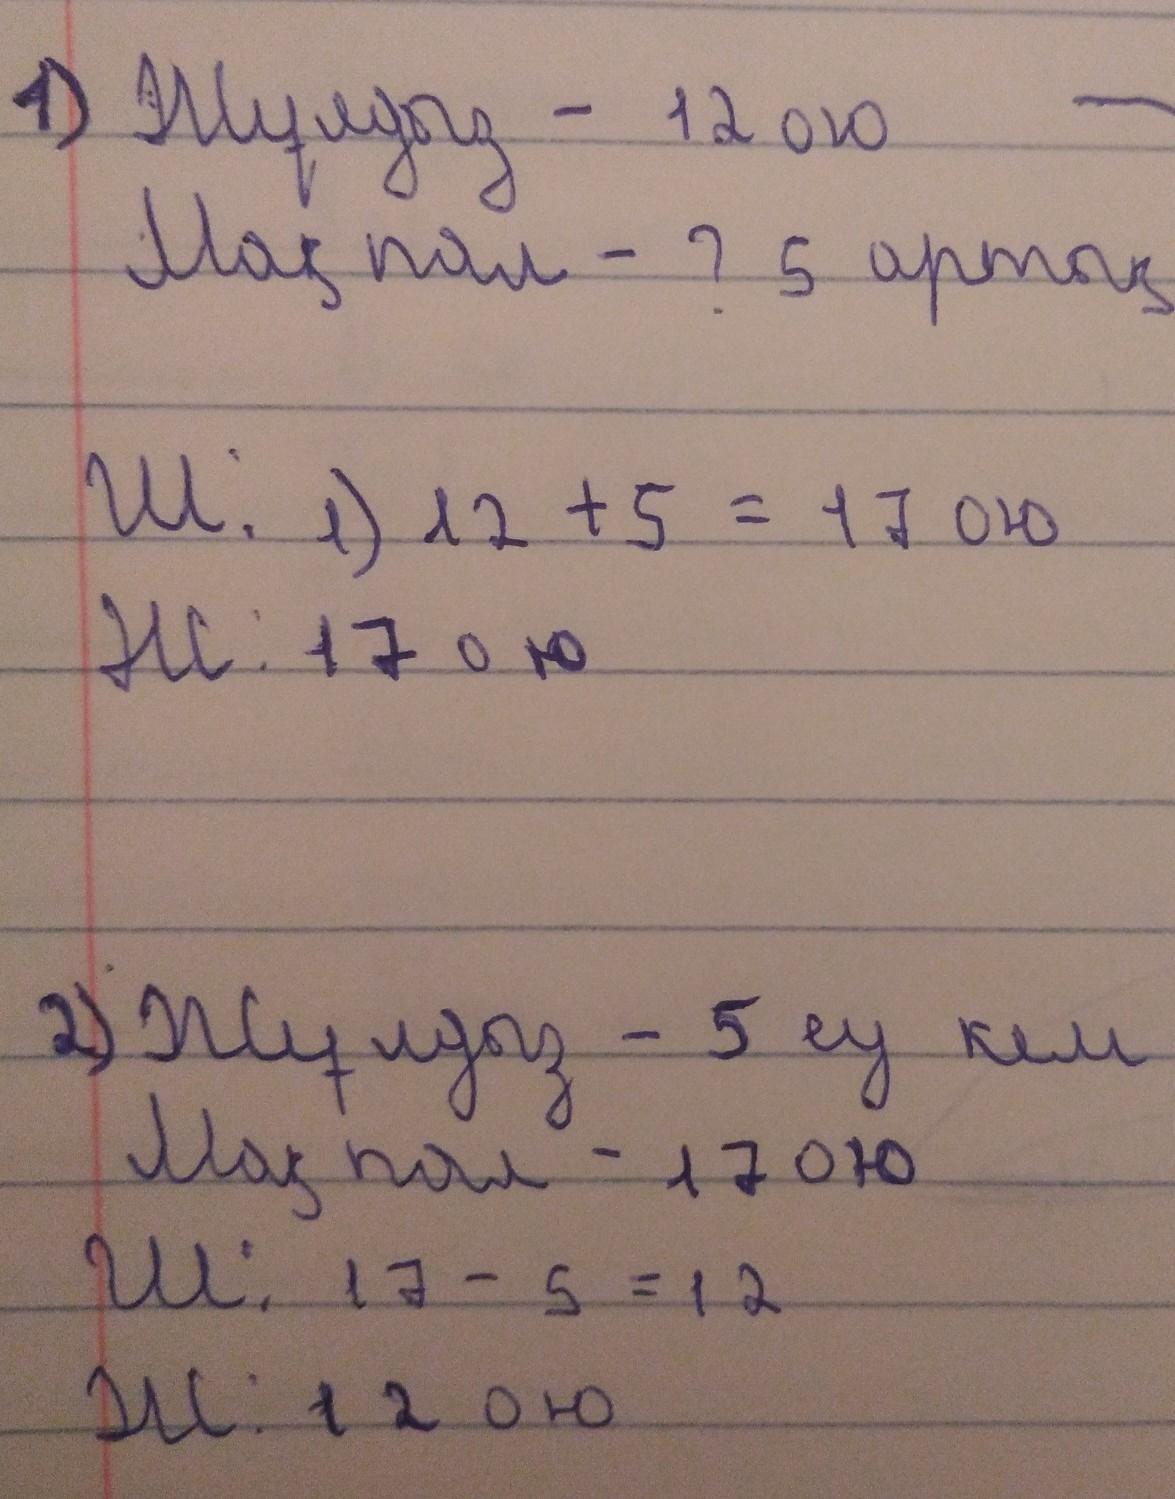 1) Жұлдыз - 12 ою
Мақпал - ? 5 артық
Ш: 1) 12 + 5 = 17 ою
Ж: 17 ою
2) Жұлдыз - 5 еу кем
Мақпал - 17 ою
Ш: 17 - 5 = 12
Ж: 12 ою